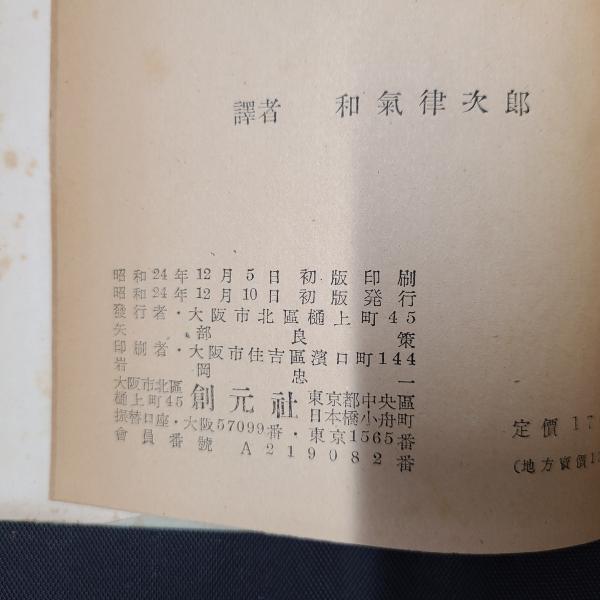 譯者 和氣律次郎
昭和24年12月5日初版印刷
昭和24年12月10日初版発行
發行者・大阪市北區樋上町45
矢部良策
印刷者・大阪市住吉區濱口町144
岩岡忠一
大阪市北區
樋上町45
創元社
東京都中央區
日本橋小舟町
振替口座・大阪57099番・東京1565番
會員番號 A219082番
定價17
(地方賣價1